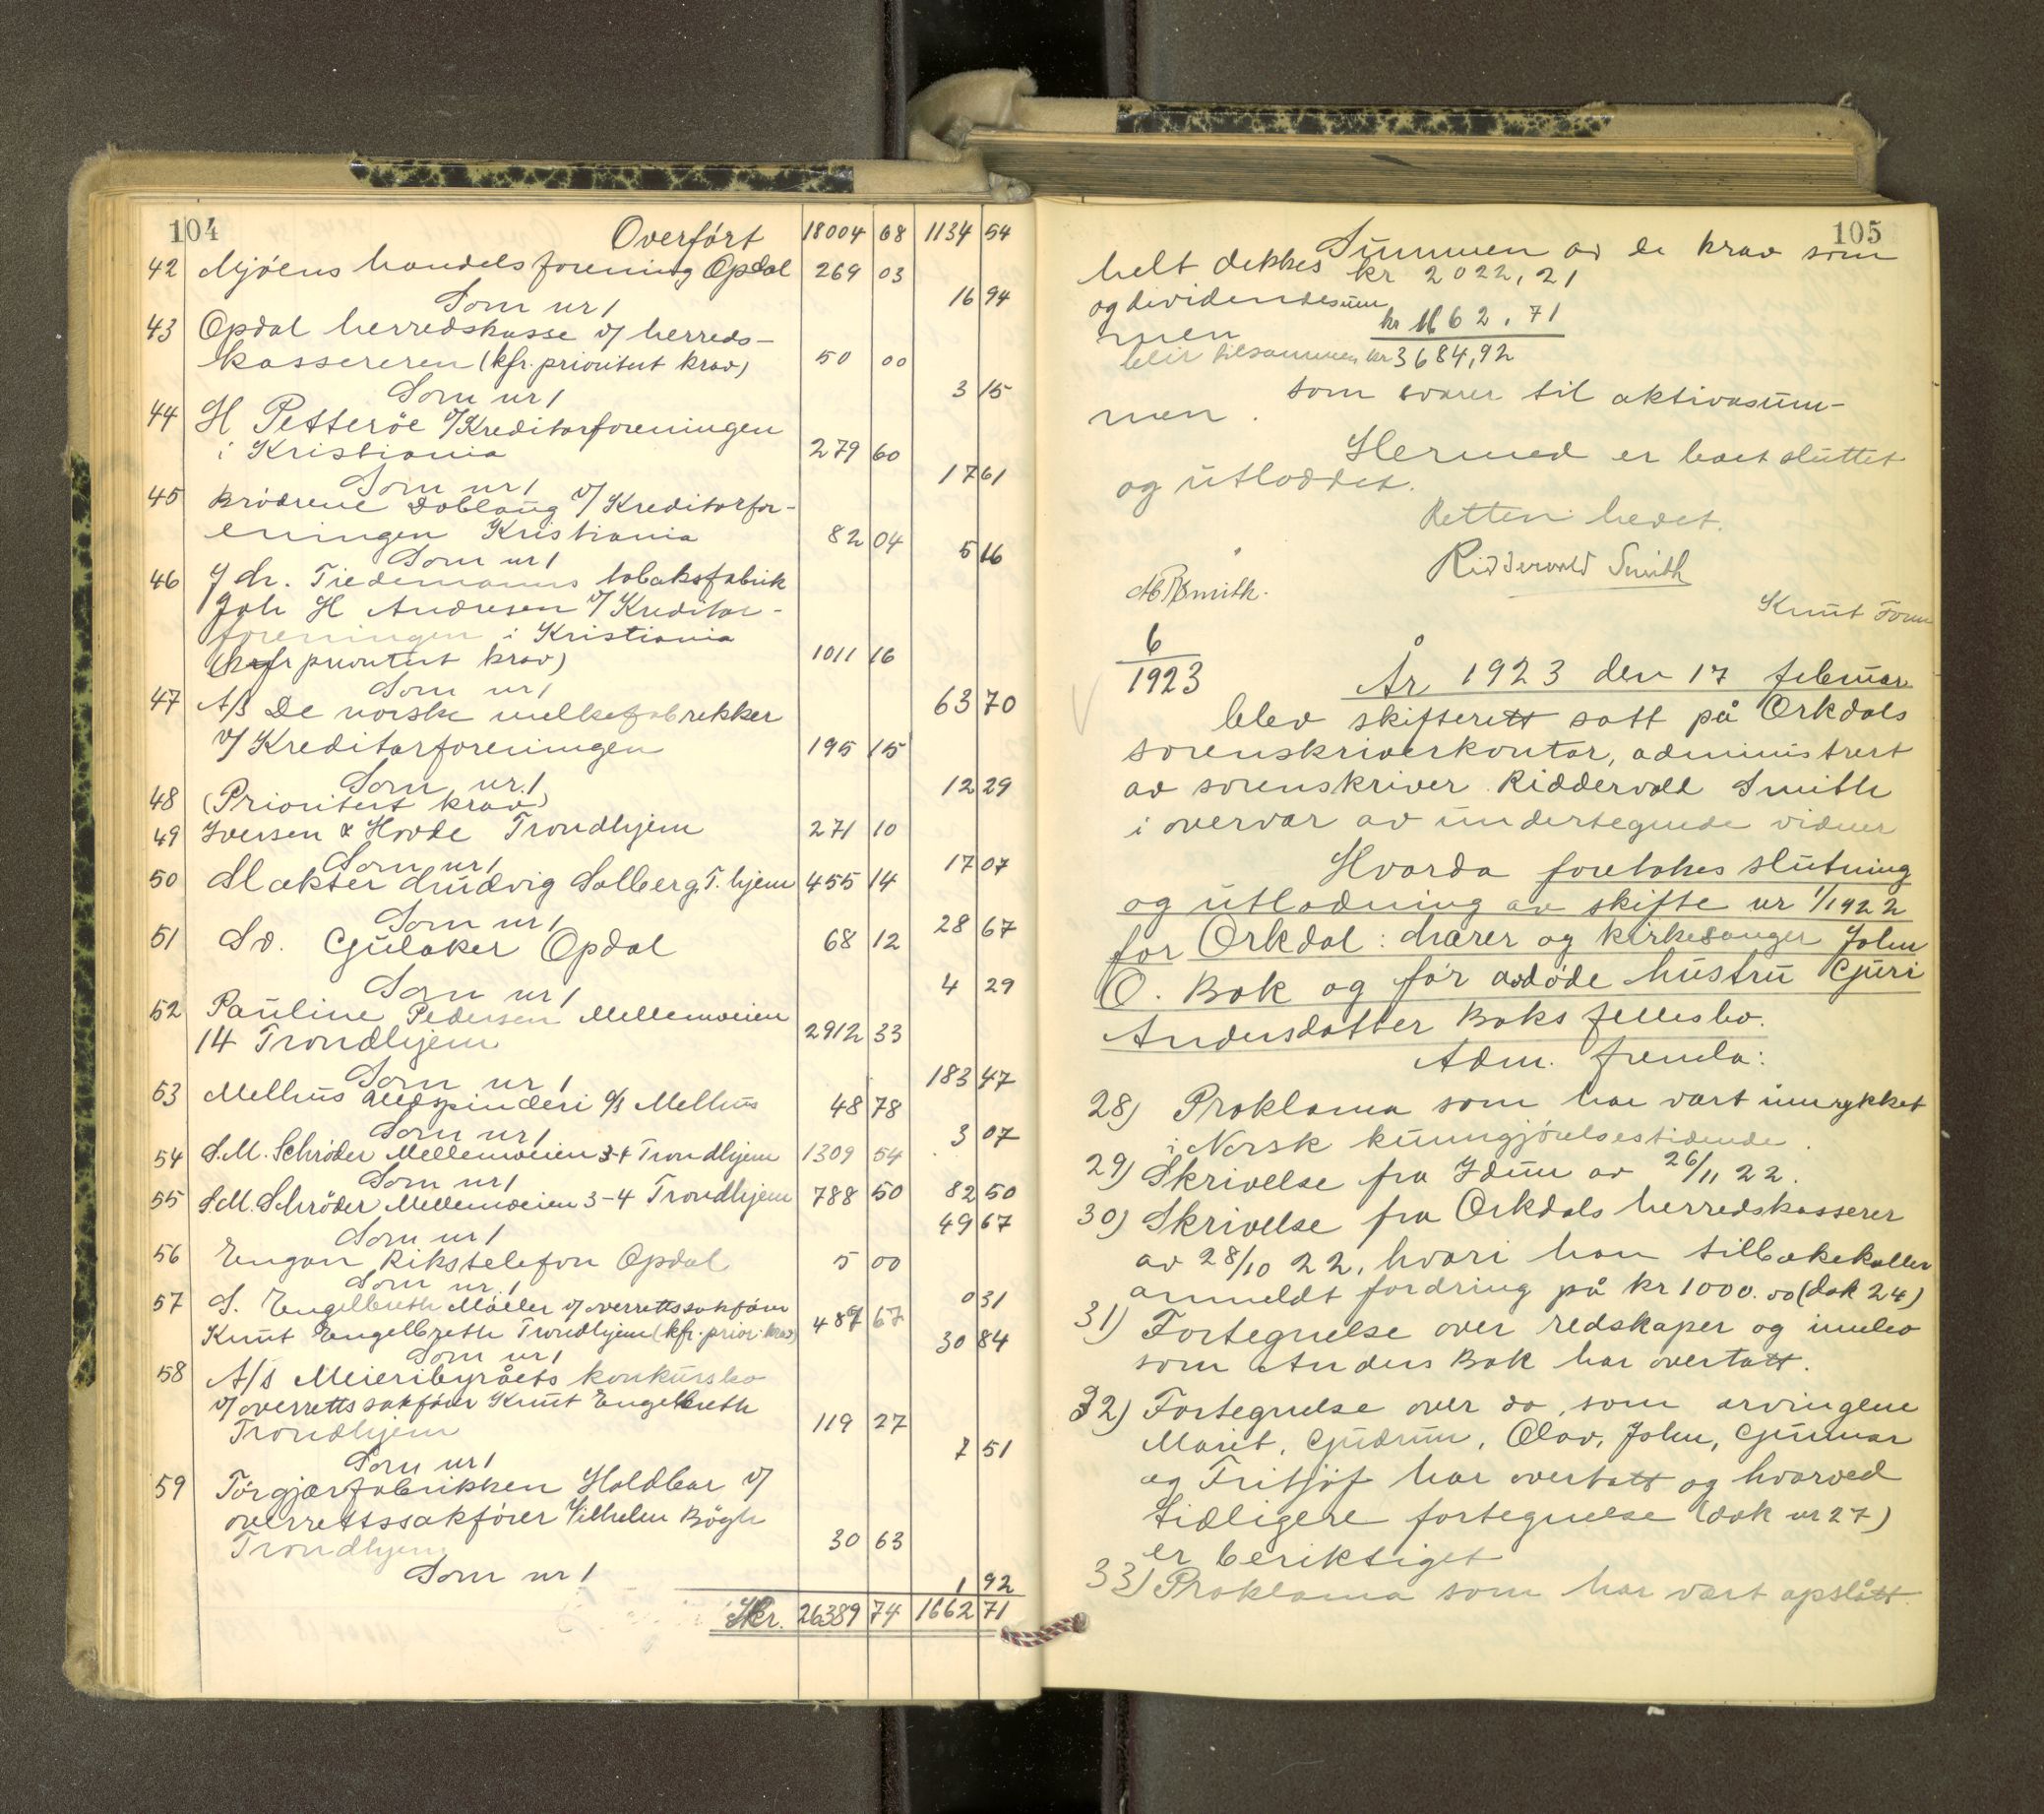 104
Overført 18004 68 1134 54
42 Mjøens handelsforening Opdal 269 03
Som nr 1 16 94
43 Opdal herredskasse v/ herreds-
kassereren (kfr. prioritert krav) 50 00
Som nr 1 3 15
44 H Petterøe v/Kreditorforeningen
i Kristiania 279 60
Som nr 1 17 61
45 Brødrene Dobloug v/ Kreditorfor-
eningen Kristiania 82 04
Som nr 1 5 16
46 J. Chr. Tiedemanns tobaksfabrik
Joh H Andresen v/ Kreditor-
foreningen i Kristiania
(kfr prioritert krav) 1011 16
Som nr 1 63 70
47 A/S De norske melkefabrekker
v/ Kreditorforeningen 195 15
Som nr. 1 12 29
48 (Prioritert krav)
49 Iversen & Hovde Trondhjem 271 10
Som nr 1 17 07
50 Slakter Ludvig Solberg, T.hjem 455 14
Som nr 1 28 67
51 Sv. Gulaker Opdal 68 12
Som nr 1 4 29
52 Pauline Pedersen Mellemveien
14 Trondhjem 2912 33
Som nr 1 183 47
53 Melhus uldspinderi a/s Melhus 48 78
Som nr 1 3 07
54 S.M. Schrøder Mellemveien 3-4 Trondhjem 1309 54
Som nr 1 82 50
55 S.M. Schrøder Mellemveien 3-4 Trondhjem 788 50
Som nr 1 49 67
56 Engan Rikstelefon Opdal 5 00
Som nr. 1 0 31
57 S. Engelbreth Møller v/ overrettssakfører
Knut Engelbreth Trondhjem (kfr. prior. krav) 489 67
Som nr 1 30 84
58 A/s Meieribyråets konkursbo
v/ overrettssakfører Knut Engelbreth
Trondhjem 119 27
Som nr 1 7 51
59 Tørgjærfabrikken Holdbar v/
overrettssakfører Vilhelm Bøgh
Trondhjem 30 63
Som nr 1 1 92
Kr. 26389 74 1662 71
105
Summen av de krav som
helt dekkes kr 2022,21
og dividendesum-
men kr 1662,71
blir tilsammen kr 3684,92
som svarer til aktivasum-
men.
Hermed er boet sluttet
og utloddet.
Retten hevet.
Riddervold Smith
Smith.
Knut
6
1923
År 1923 den 17 februar
blev skifterett satt på Orkdals
sorenskriverkontor, administrert
av sorenskriver Riddervold Smith
i overvær av undertegnede vidner
Hvorda foretokes slutning
og utlodning av skifte nr 1/1922
for Orkdal: Lærer og kirkesanger John
O. Bak og før avdøde hustru Guri
Andersdatter Baks fellesbo.
Adm. fremla:
28) Proklama som har vært innrykket
i Norsk kunngjørelsestidende.
29) Skrivelse fra Idun av 26/11 22.
30) Skrivelse fra Orkdals herredskasserer
av 28/10 22, hvori han tilbakekaller
anmeldt fordring på kr 1000.00 (dok 24)
31) Fortegnelse over redskaper og innbo
som Anders Bak har overtatt.
32) Fortegnelse over do, som arvingene
Marit, Gudrun, Olav, John, Gunnar
og Fritjof har overtatt og hvorved
tidligere fortegnelse (dok nr 27)
er beriktiget
33) Proklama som har vært opslått